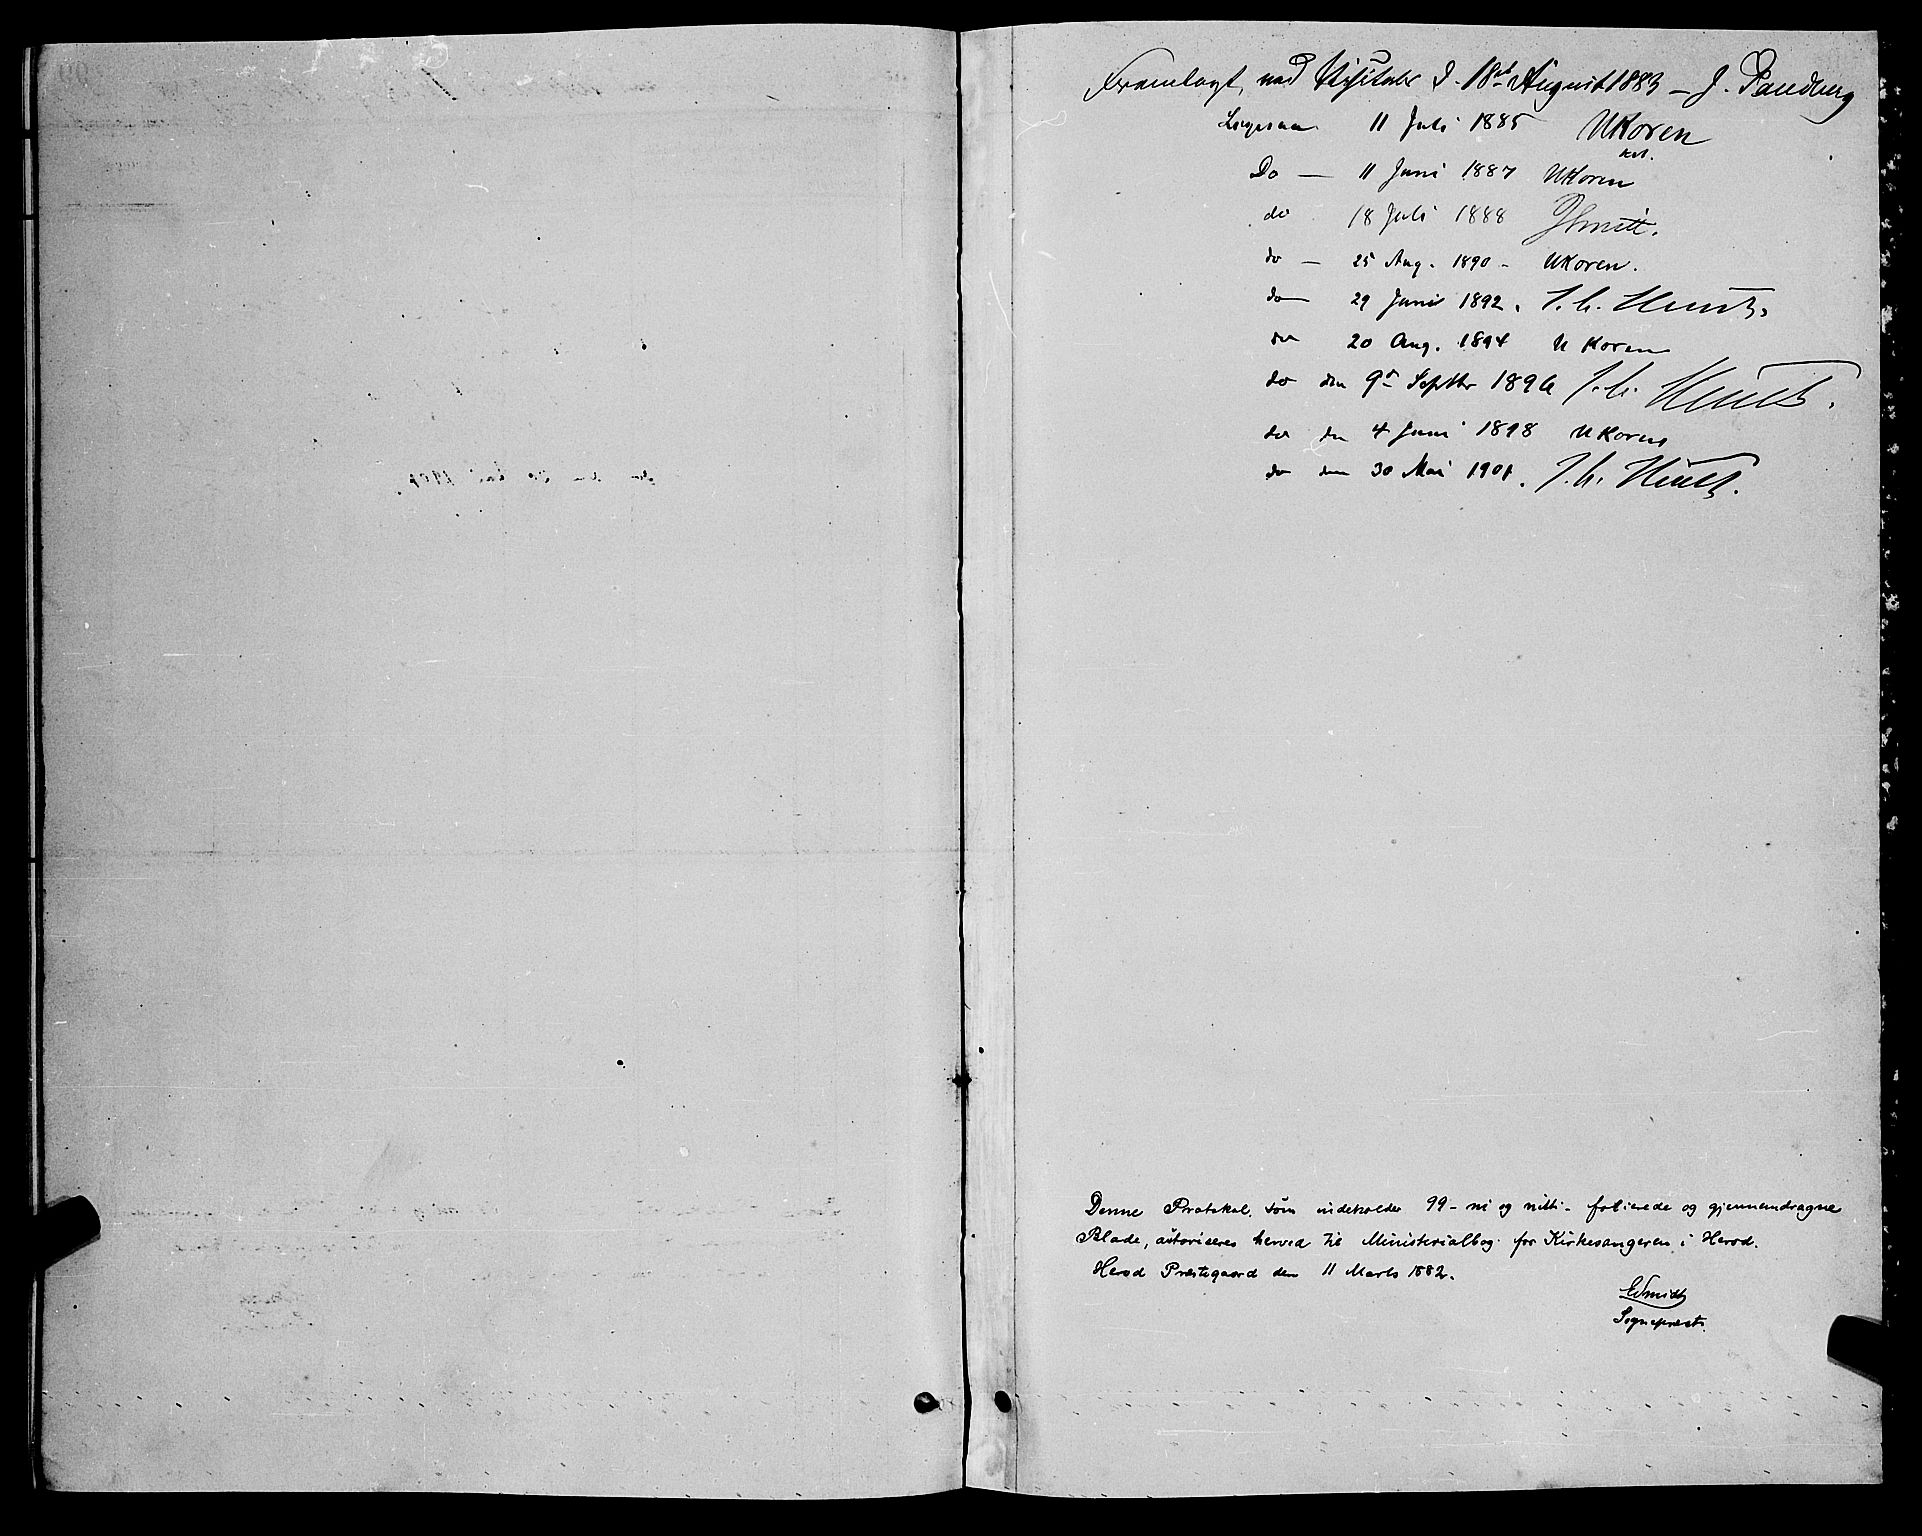 Fremlagt ved Visitats d. 18de August 1883 – J.
Ligesaa 11 Juli 1885 UKoren
Do — 11 Juni 1887 UKoren
do 18 Juli 1888
do — 25 Aug. 1890 – UKoren.
do — 29 Juni 1892. J. C.
do 20 Aug. 1894 U Koren
do den 9de Septbr 1896 J. C.
do den 4 Juni 1898 UKoren
do den 30 Mai 1901. J. C.
Denne Protokol, som indeholder 99 – ni og nitti – folierede og gjennemdragne
Blade, autoriseres herved til Ministerialbog for Kirkesangeren i Herød.
Herød Præstegaard den 11 Marts 1882.
Schmidt
Sognepræst.